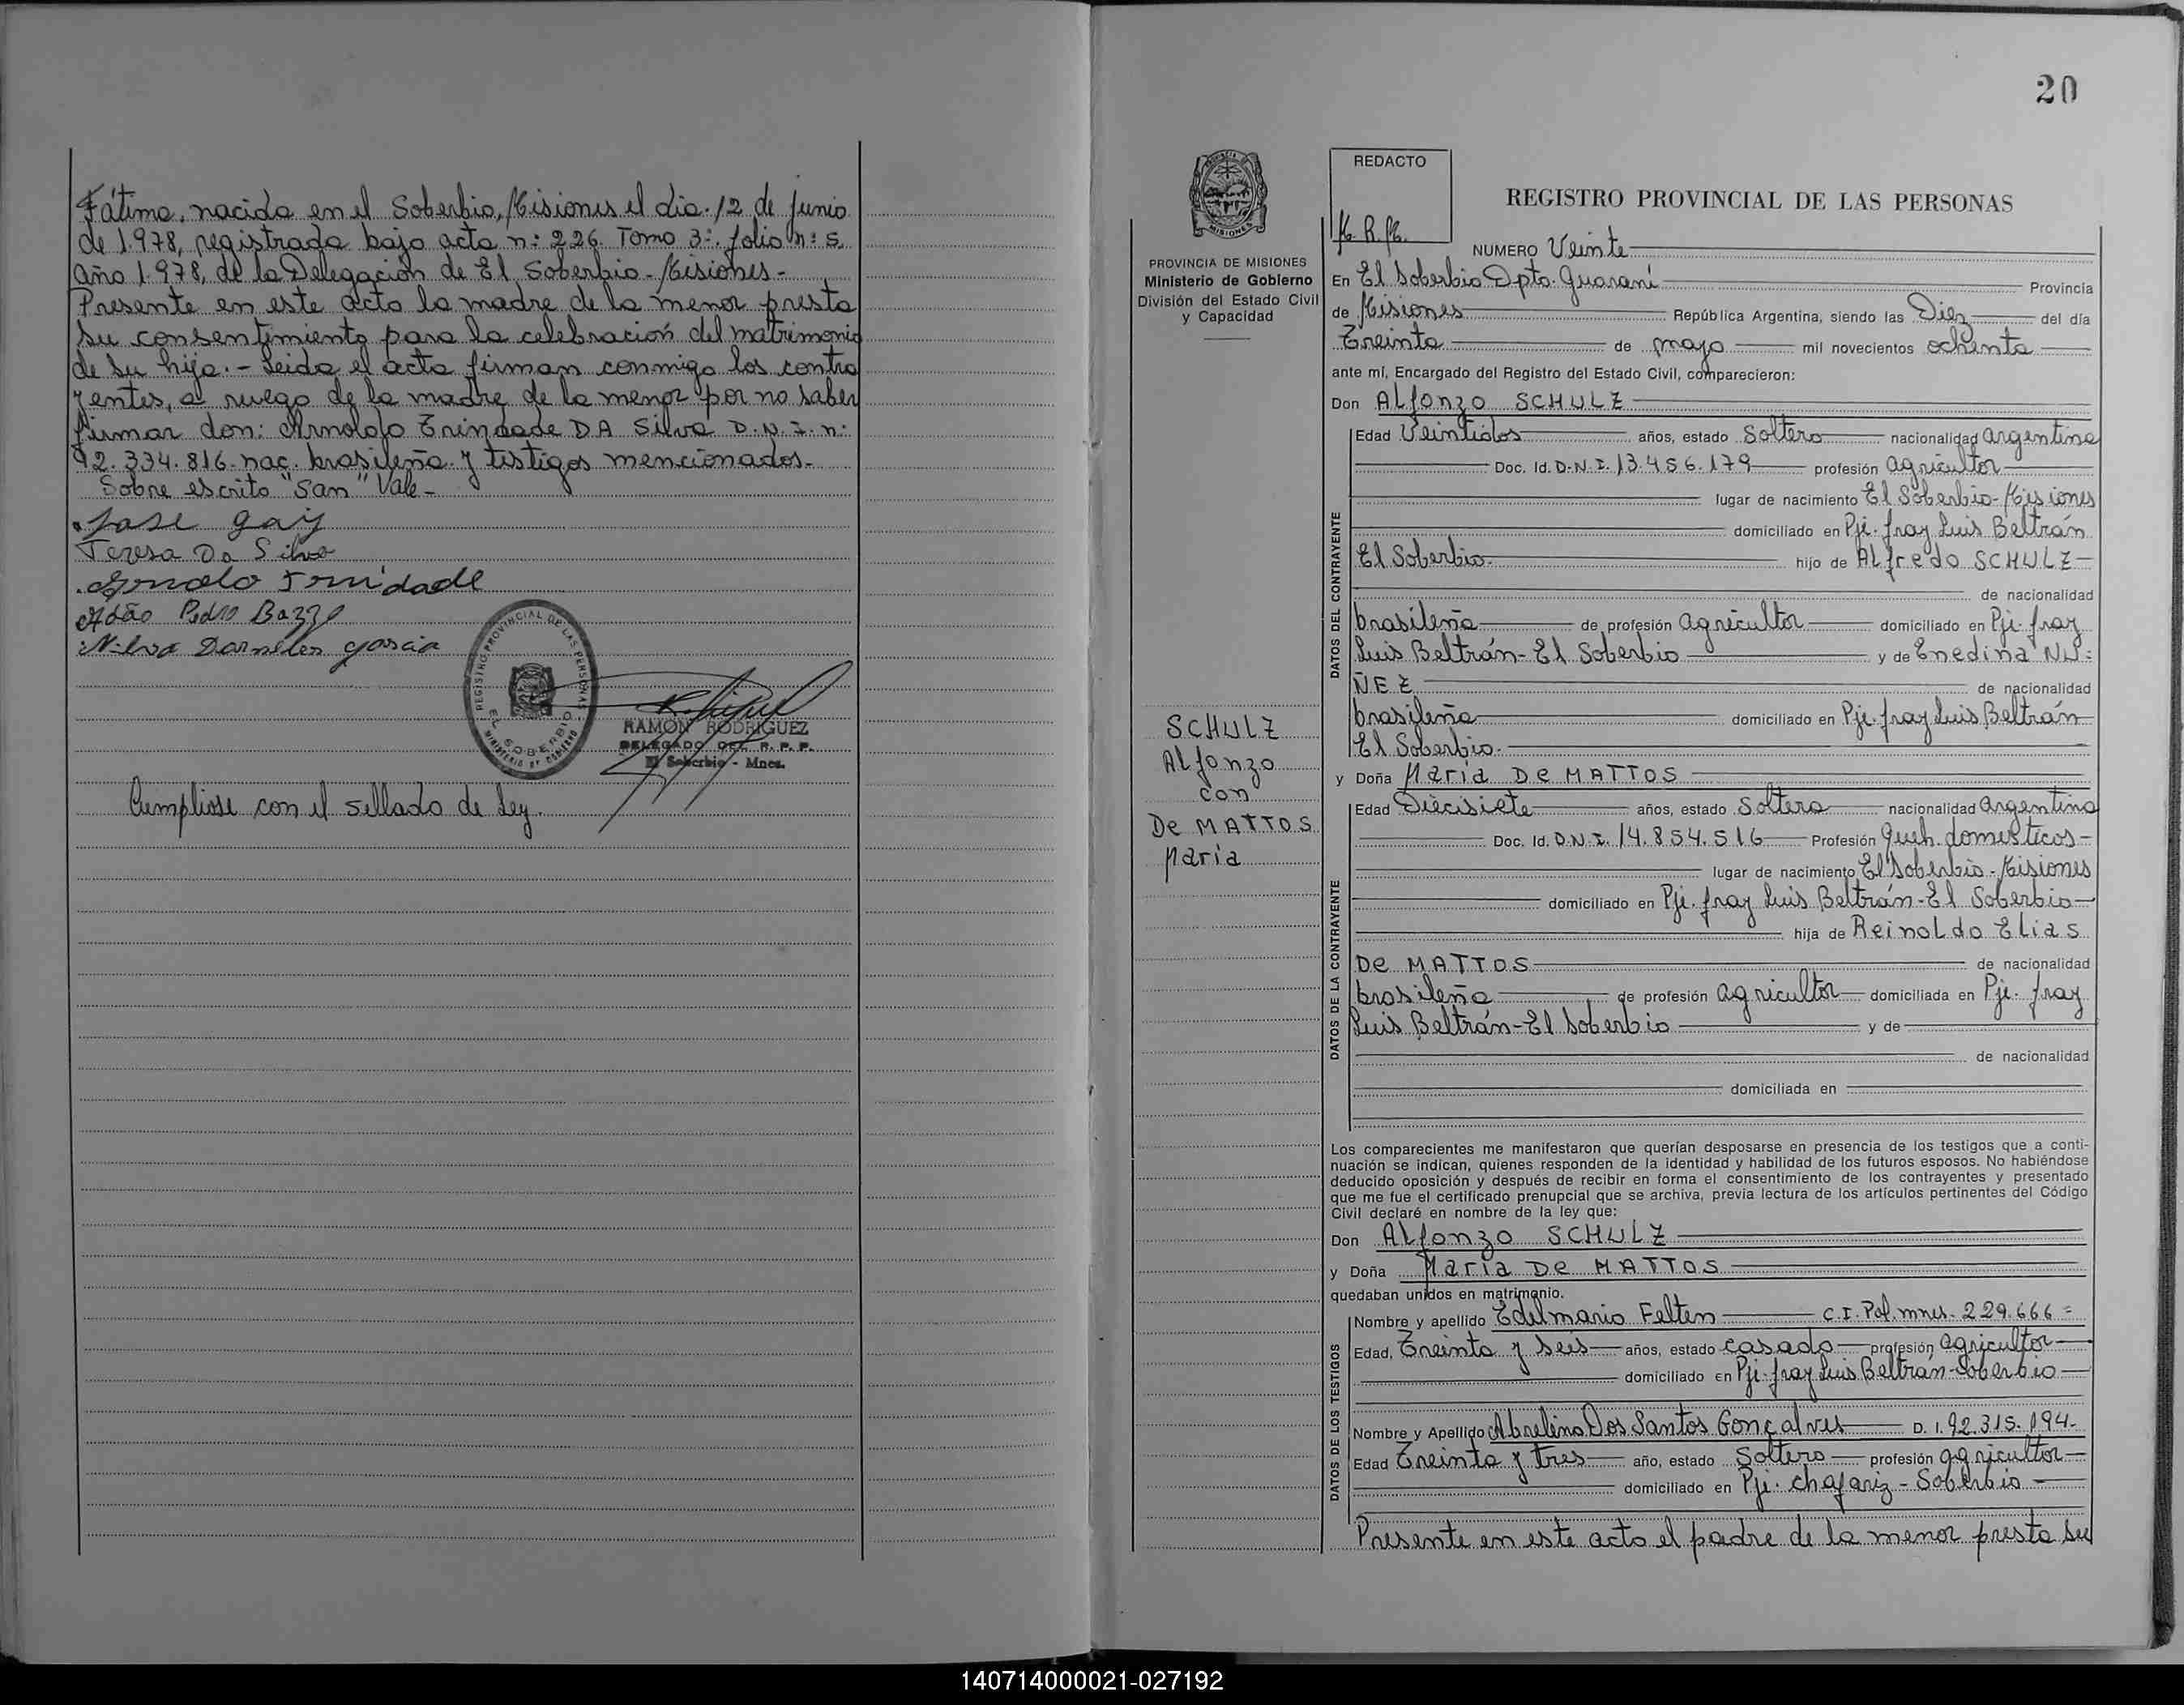 Fátima, nacida en el Soberbio, Misiones el dia 12 de junio
de 1.978, registrada bajo acta n: 226 Tomo 3: folio n: 5
año 1.978, de la Delegación de El Soberbio - Misiones -
Presente en este acto la madre de la menor presta
su consentimiento para la celebración del matrimonio
de su hija. - Leida el acta firman conmigo los contra
yentes, a ruego de la madre de la menor por no saber
firmar don: Arnoldo Trindade DA Silva D.N.I. n:
92.334.816 nac. brasileña y testigos mencionados.-
Sobre escrito "San" Vale -
Jose gay
Teresa Da Silva
Trindade
Adão Pedro Bazzo
Nilva Dornelles garcia
REGISTRO PROVINCIAL DE LAS PERSONAS
EL SOBERBIO
MINISTERIO DE GOBIERNO
RAMÓN RODRIGUEZ
DELEGADO DEL R. P. P.
El Soberbio - Mnes.
Cumpliose con el sellado de Ley.
20
REDACTO
M. R. M.
REGISTRO PROVINCIAL DE LAS PERSONAS
PROVINCIA DE MISIONES
Ministerio de Gobierno
División del Estado Civil
y Capacidad
SCHULZ
Alfonzo
con
De MATTOS
María
NUMERO Veinte
En El Soberbio Dpto. Guaraní Provincia
de Misiones República Argentina, siendo las Diez del día
Treinta de mayo mil novecientos ochenta
ante mí, Encargado del Registro del Estado Civil, comparecieron:
Don Alfonzo SCHULZ
DATOS DEL CONTRAYENTE
Edad Veintidos años, estado Soltero nacionalidad argentina
Doc. Id. D.N.I. 13.456.179 profesión agricultor
lugar de nacimiento El Soberbio - Misiones
domiciliado en Pje. fray Luis Beltrán
El Soberbio. hijo de Alfredo SCHULZ
de nacionalidad
brasileña de profesión agricultor domiciliado en Pje. fray
Luis Beltrán - El Soberbio y de Enedina NU=
ÑEZ de nacionalidad
brasileña domiciliado en Pje. fray Luis Beltrán
El Soberbio.
y Doña María De MATTOS
DATOS DE LA CONTRAYENTE
Edad Diecisiete años, estado Soltera nacionalidad argentina
Doc. Id. D.N.I. 14.854.516 Profesión queh. domesticos -
lugar de nacimiento El Soberbio - Misiones
domiciliado en Pje. fray Luis Beltrán - El Soberbio
hija de Reinoldo Elias
De MATTOS de nacionalidad
brasileña de profesión agricultor domiciliada en Pje. fray
Luis Beltrán - El Soberbio y de
de nacionalidad
domiciliada en
Los comparecientes me manifestaron que querían desposarse en presencia de los testigos que a conti-
nuación se indican, quienes responden de la identidad y habilidad de los futuros esposos. No habiéndose
deducido oposición y después de recibir en forma el consentimiento de los contrayentes y presentado
que me fue el certificado prenupcial que se archiva, previa lectura de los artículos pertinentes del Código
Civil declaré en nombre de la ley que:
Don Alfonzo SCHULZ
y Doña María De MATTOS
quedaban unidos en matrimonio.
DATOS DE LOS TESTIGOS
Nombre y apellido Edelmario Felten C.I. Pol. mnes. 229.666=
Edad, Treinta y seis años, estado casado profesión agricultor
domiciliado en Pje. fray Luis Beltrán - Soberbio
Nombre y Apellido Abrelino Dos Santos Gonçalves D.I. 92.315.194-
Edad Treinta y tres año, estado Soltero profesión agricultor
domiciliado en Pje. chafariz - Soberbio -
Presente en este acto el padre de la menor presta su
140714000021-027192